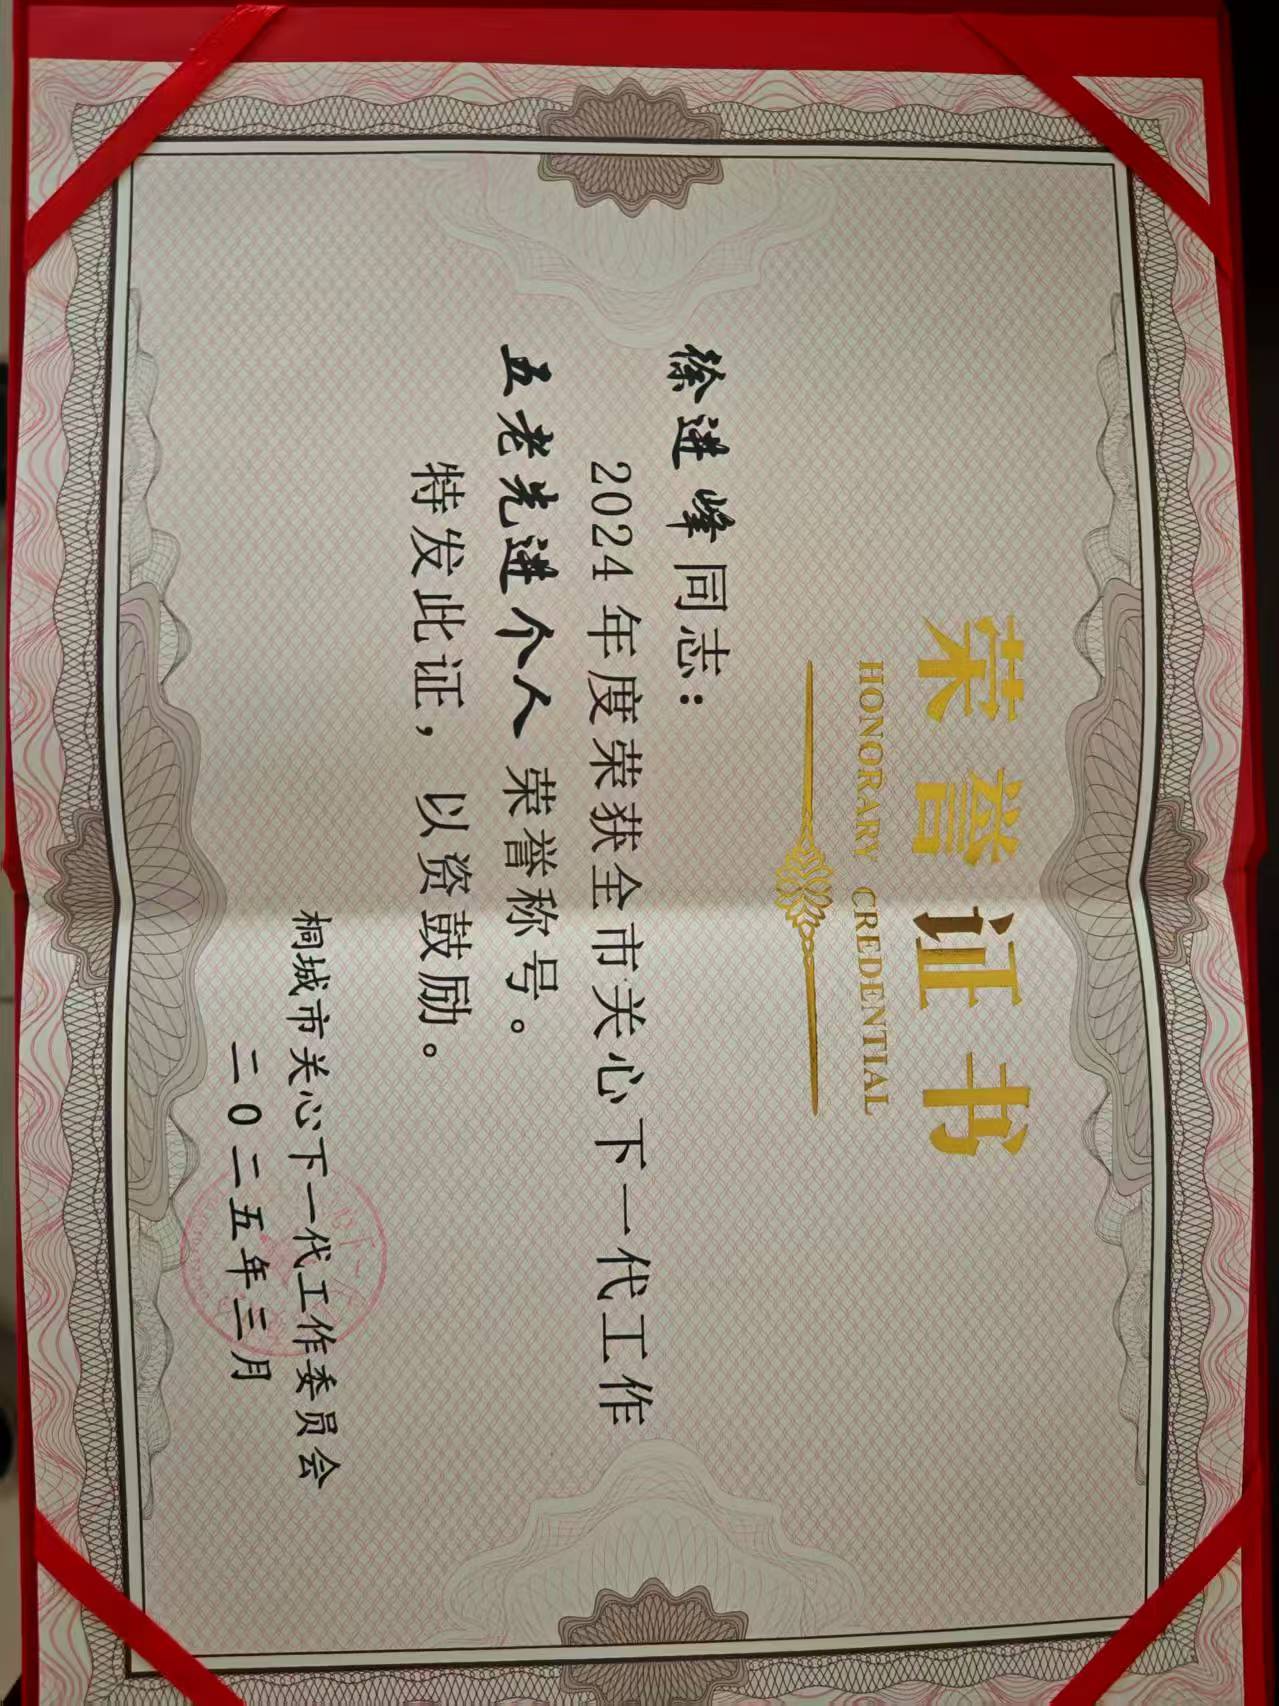 荣誉证书
HONORARY CREDENTIAL
徐进峰同志：
2024年度荣获全市关心下一代工作
五老先进个人荣誉称号。
特发此证，以资鼓励。
桐城市关心下一代工作委员会
二〇二五年三月